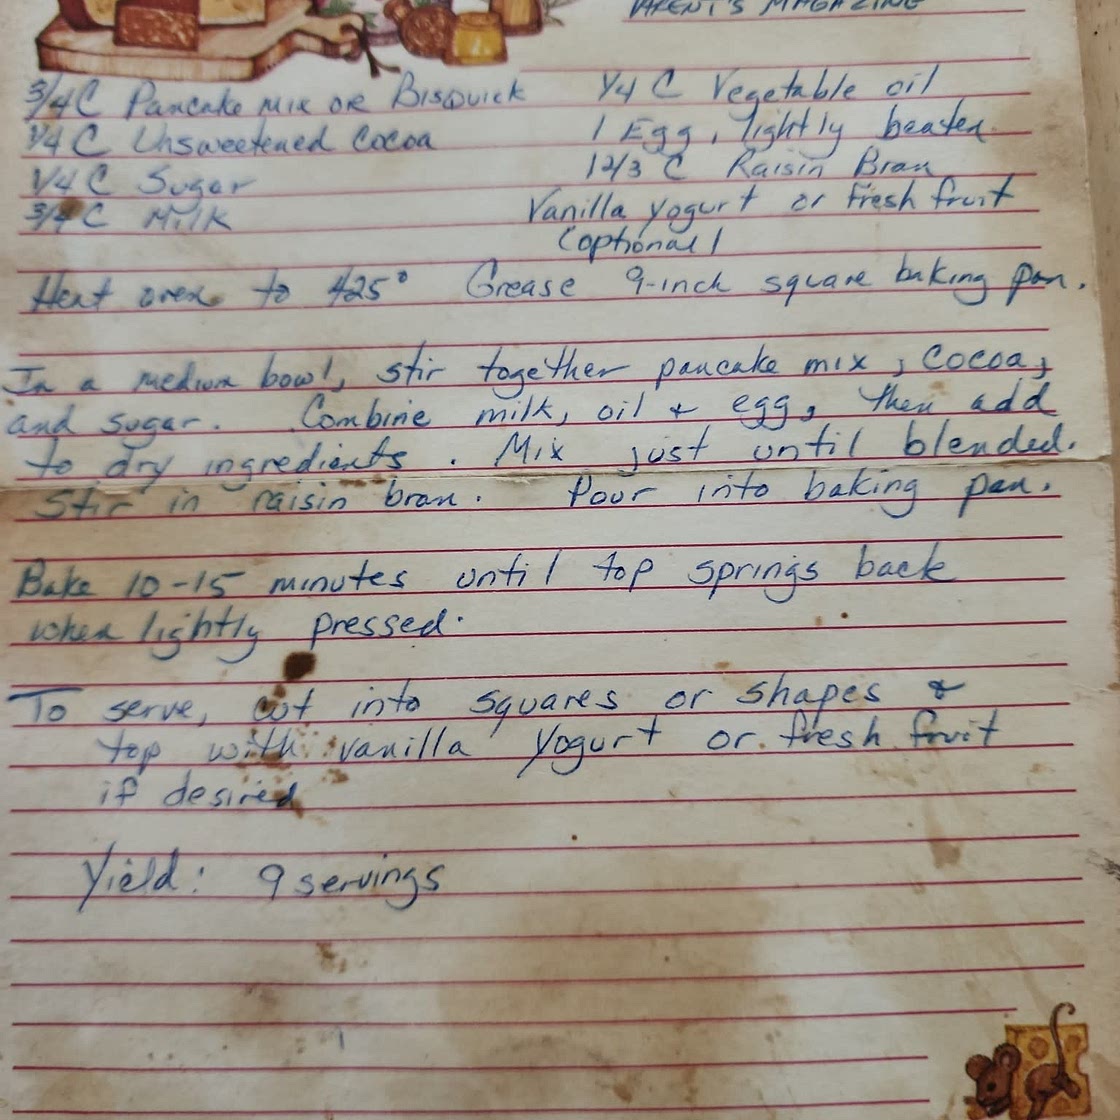 PARENT'S MAGAZINE
3/4 C Pancake mix or Bisquick
1/4 C Unsweetened Cocoa
1/4 C Sugar
3/4 C Milk
1/4 C Vegetable oil
1 Egg, lightly beaten
1 2/3 C Raisin Bran
Vanilla yogurt or fresh fruit
(optional)
Heat oven to 425° Grease 9-inch square baking pan.
In a medium bowl, stir together pancake mix, cocoa,
and sugar. Combine milk, oil & egg, then add
to dry ingredients. Mix just until blended.
Stir in raisin bran. Pour into baking pan.
Bake 10-15 minutes until top springs back
when lightly pressed.
To serve, cut into squares or shapes &
top with vanilla yogurt or fresh fruit
if desired
Yield: 9 servings